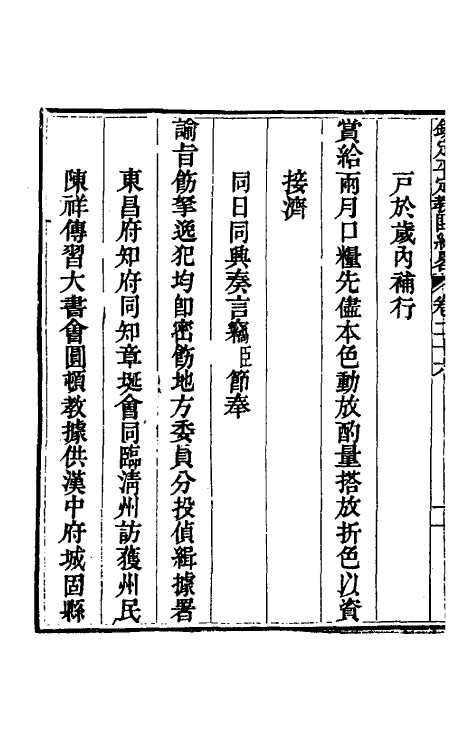 戸於歲內補行
賞給兩月口糧先儘本色動放酌量搭放折色以資
接濟
同日同興奏言竊臣節奉
諭旨飭拏逸犯均卽密飭地方委員分投偵緝據署
東昌府知府同知章㙂會同臨淸州訪獲州民
陳祥傳習大書會圓頓教據供漢中府城固縣